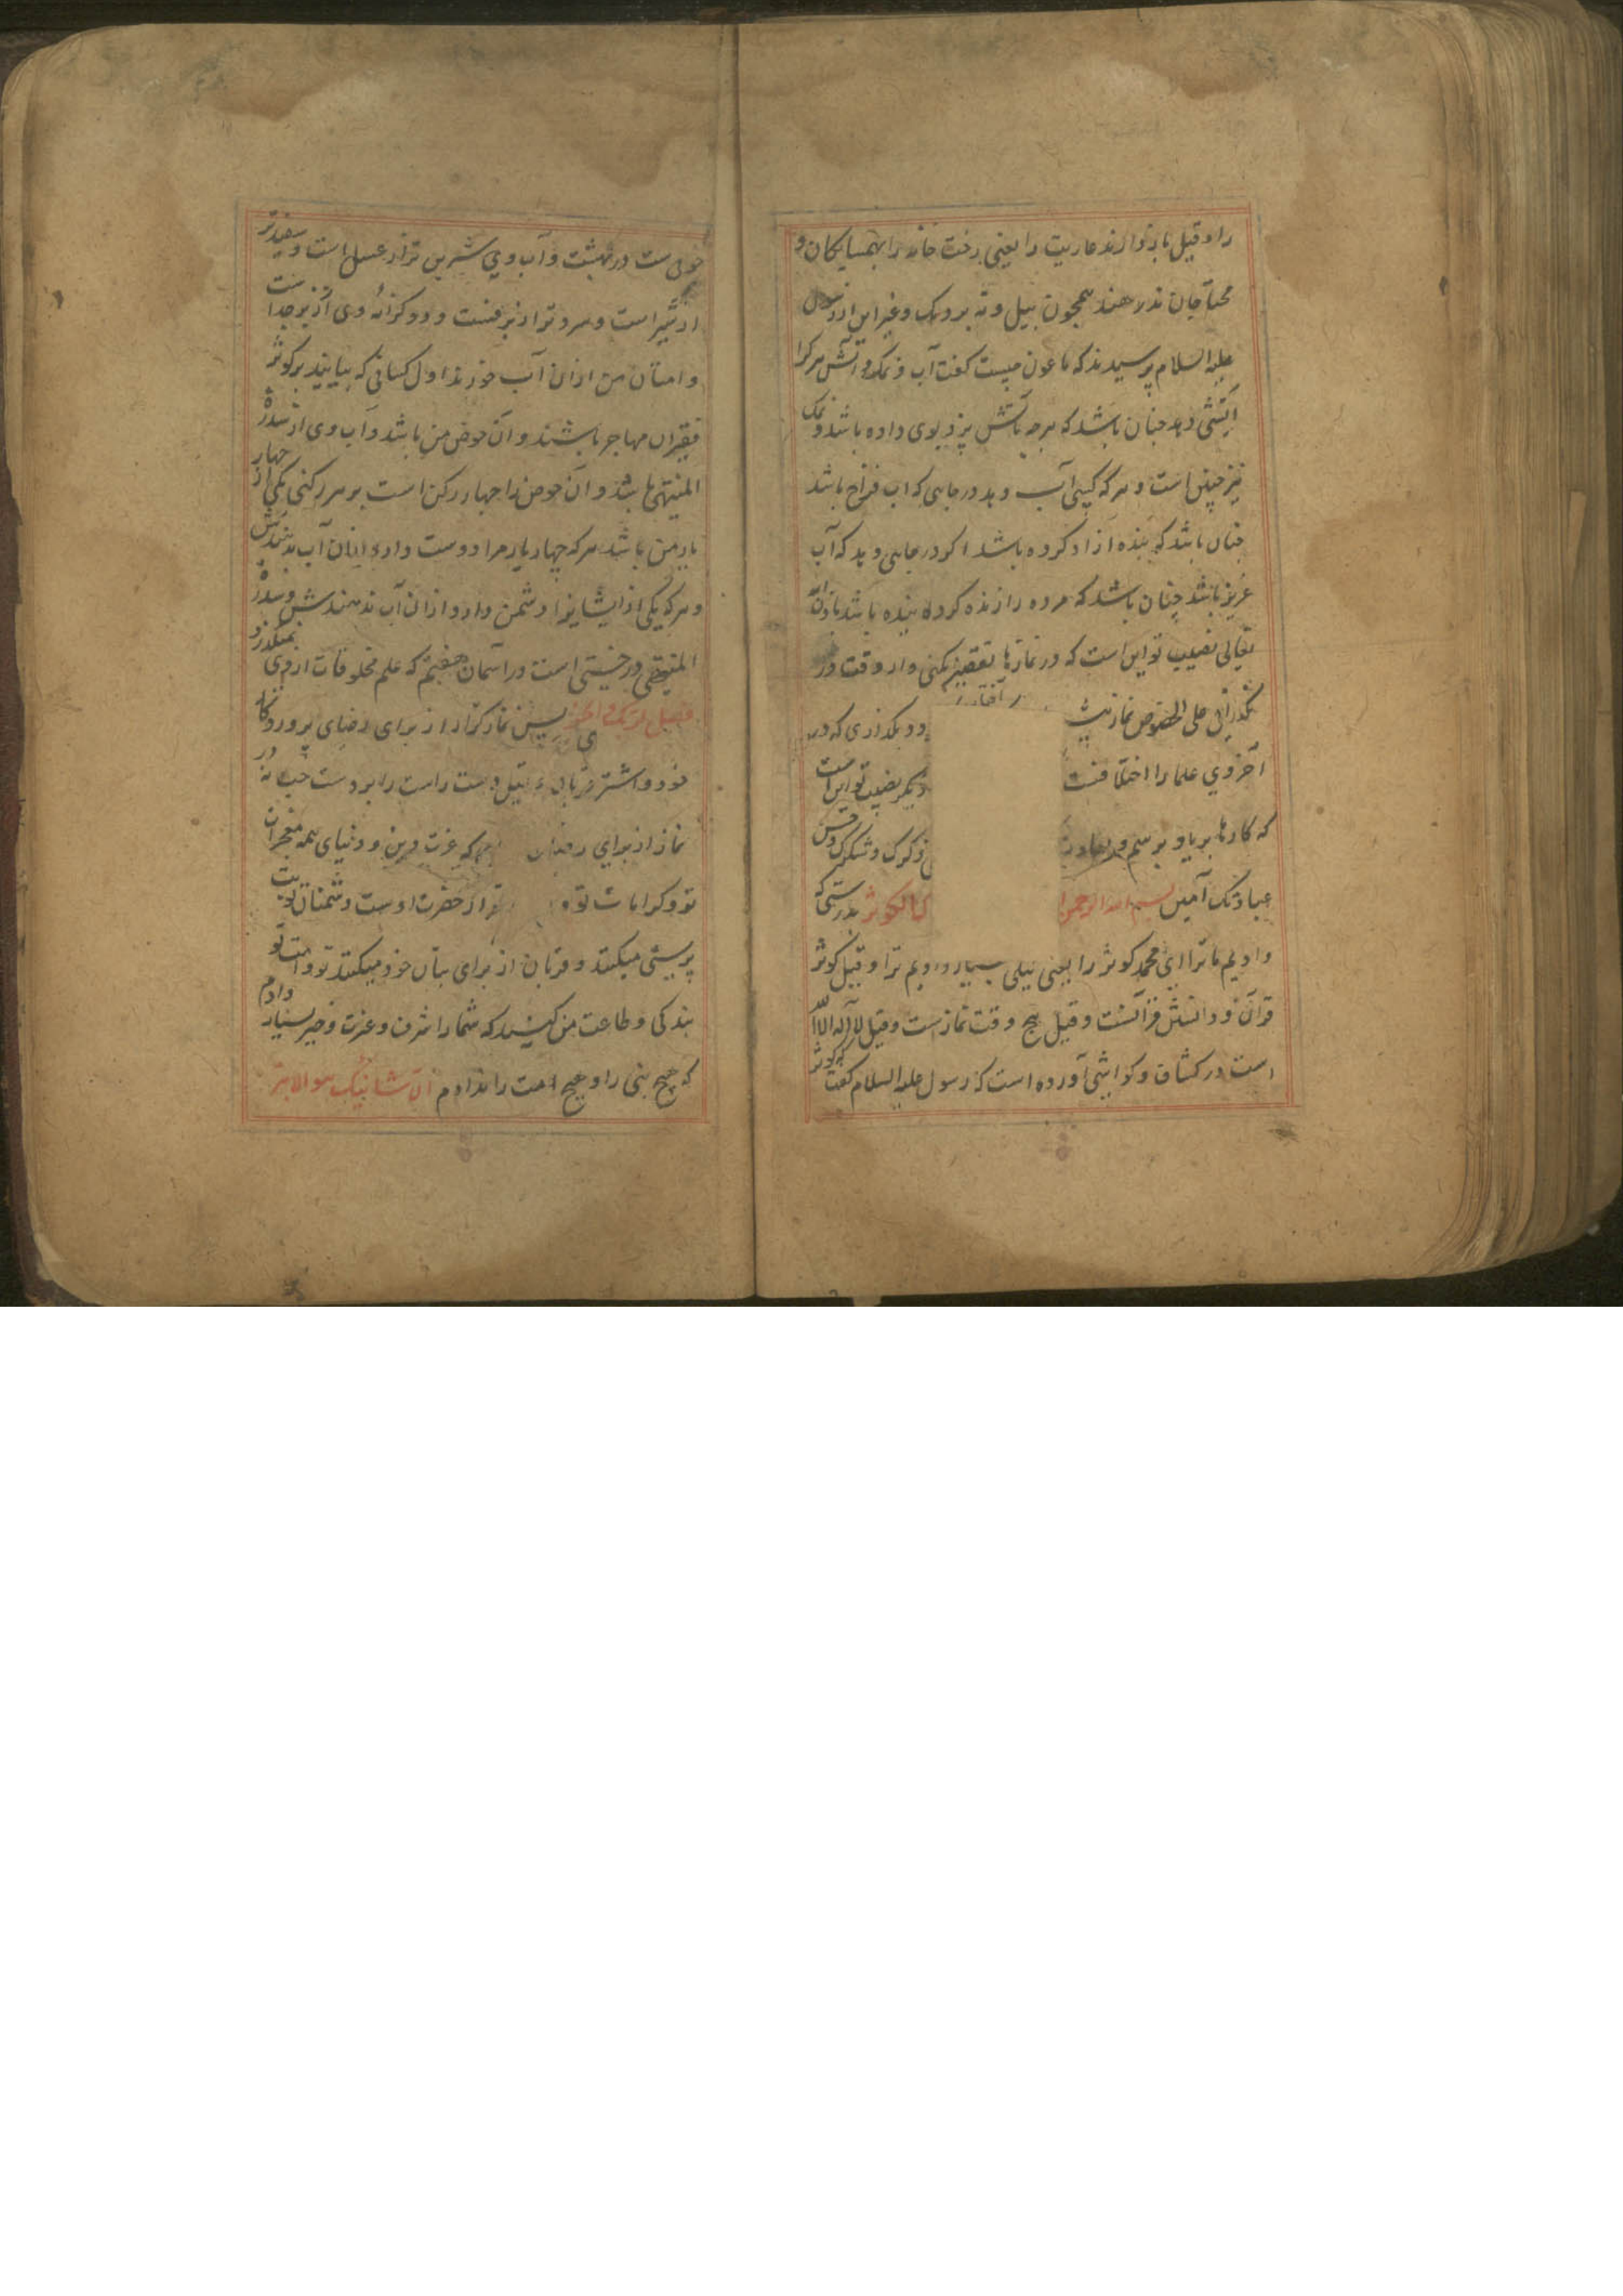 را و قیل باز دارند عاریت را یعنی رخت خانه را بهمسایکان و
محتاجان ندهند همچون بیل و تبر و دیک و غیر این از رسول
علیه السلام پرسیدند که ماعون چیست کفت آب و نمک و آتش هر کرا
آتشی دهد چنان باشد که هر چه بآتش پزد بوی داده باشد و نمک
نیز چنین است و هر که کسی آب دهد در جایی که اب فراخ باشد
چنان باشد که بنده آزاد کرده باشد اکر در جایی دهد که آب
عزیز باشد چنان باشد که مرده را زنده کرده بنده باشد بدان
تعالی نصیب تو این است که در نمازها تقصیر نکنی و از وقت در
نکذرانی علی الخصوص نماز آفتاب زرد و بکذری که در
آخر وی علما را اختلافست دیکر نصیب تو این است
که کارها بریا و برسم و بعادت
عبادتک آمین بسم الله الرحمن الکوثر بدرستی که
دادیم ما ترا ای محمد کوثر را یعنی نیکی بسیار دادیم ترا و قیل کوثر
قرآن و دانش قرآنست و قیل پنج وقت نماز ست و قیل لا اله الا الله
است در کشاف و کواشی آورده است که رسول علیه السلام کفت که کوثر
حوضی ست در بهشت و آب وی شیرین تر از عسل است و سفیدتر
از شیر است و سردتر از برفست و دو کرانه وی از زبرجد است
و امتان من ازان آب خورند اول کسانی که بیایند بر کوثر
فقیران مهاجر باشند و آن حوض من باشد و آب وی از سدرة
المنتهی باشد و آن حوض را چهار رکن است بر هر رکنی یکی از چهار
یار من باشد هر که چهار یار مرا دوست دارد ازان آب بدهندش
و هر که یکی از ایشانرا دشمن دارد ازان آب ندهندش و سدرة
المنتهی درختی است در آسمان هفتم که علم مخلوقات از وی نمیکذرد
فصل لربک وانحر پس نماز کزار از برای رضای پروردکار
خود و اشتر قربان کن و قیل دست راست را بر دست چپ نه در
نماز از برای که عزت دین و دنیای همه معجزات
تو و کرامات تو از حضرت اوست دشمنان تو بت
پرستی میکنند و قربان از برای بتان خود میکنند تو و امت تو
بندکی و طاعت من کنید که شما را شرف و عزت و خیر بسیار دادم
که هیچ نبی را و هیچ امت را ندادم ان شانئک هو الابتر